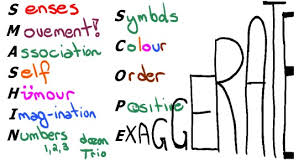 Senses
Movement!
Association
Self
Humour
Imag-ination
Numbers
1,2,3 dozen
Trio
Symbols
Colour
Order
Positive
EXAGGERATE